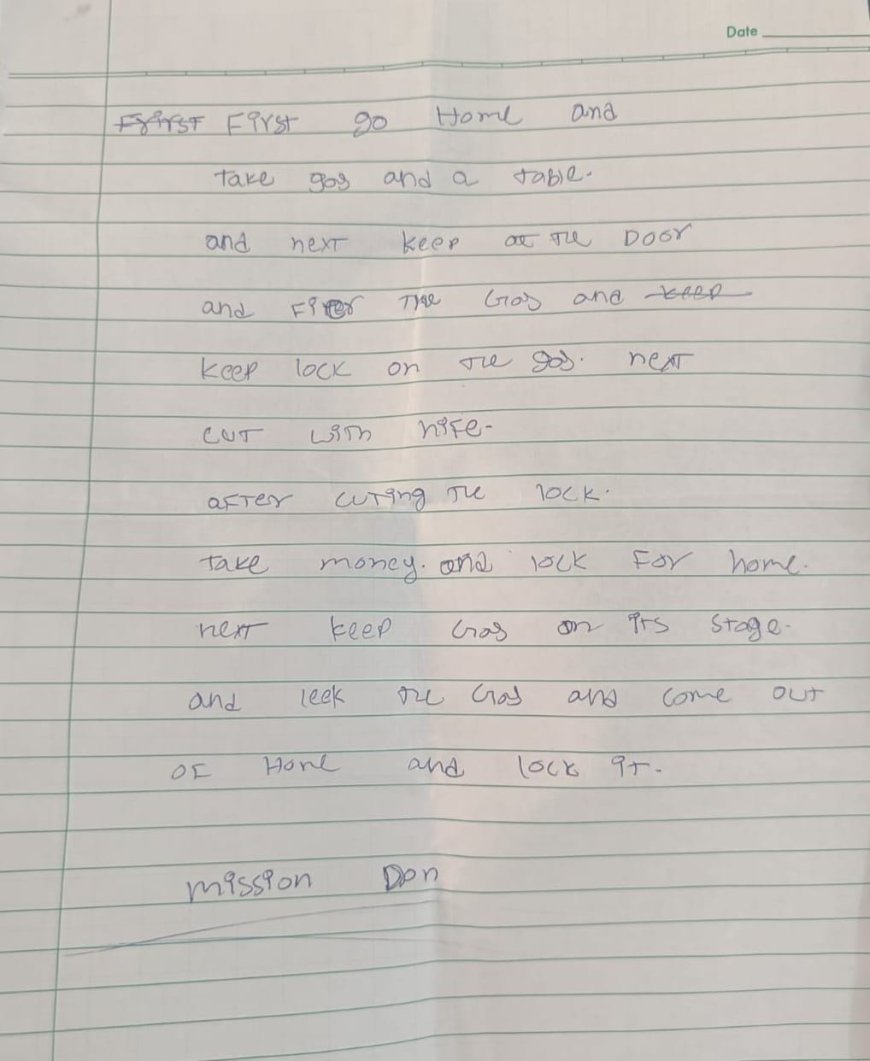 Date
First First go Home and
take gas and a table.
and next keep at the Door
and Fier The Gas and keep
keep lock on the gas. next
cut with nife-
after cuting the lock.
take money. and lock For home.
next keep Gas on its stage.
and leek the Gas and come out
of Home and lock it.
mission Don